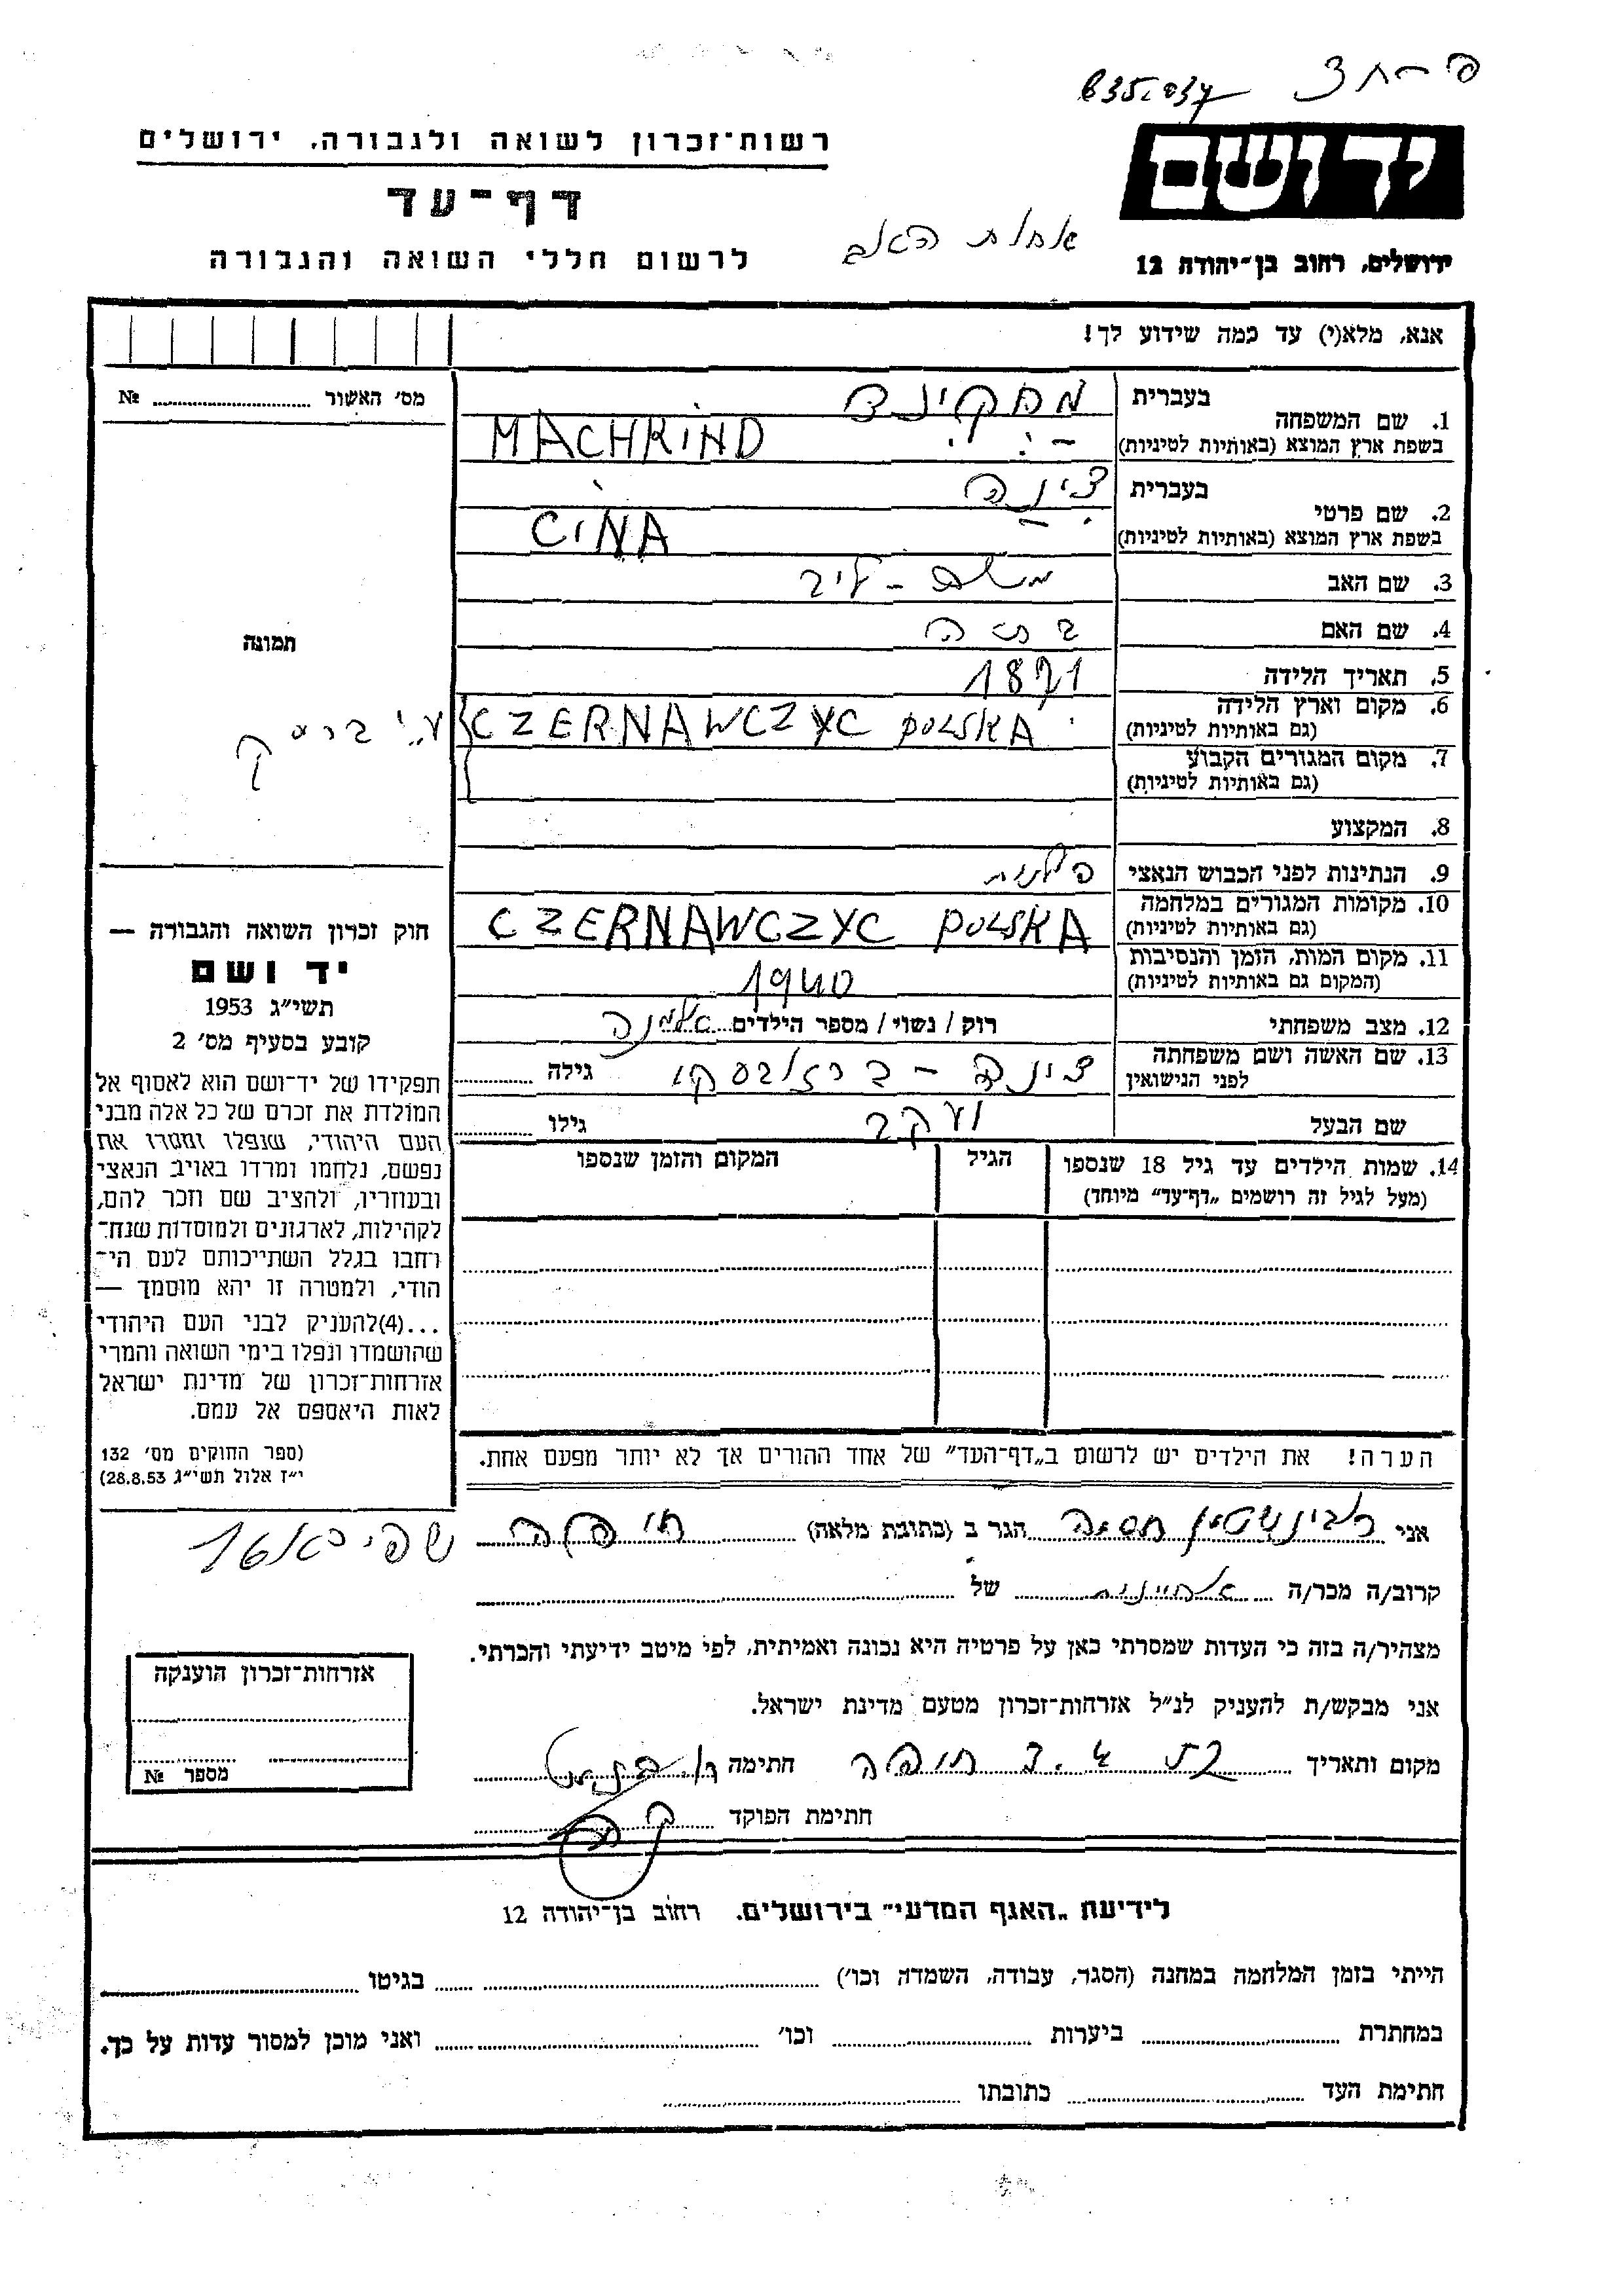 ידושם
ירושלים, רחוב בן־יהודה 12
רשות־זכרון לשואה ולגבורה, ירושלים
דף־עד
לרשום חללי השואה והגבורה
אנא, מלא(י) עד כמה שידוע לך!
מס' האשור № 
1. שם המשפחה
בעברית מחקינד
בשפת ארץ המוצא (באותיות לטיניות) MACHKIND
2. שם פרטי
בעברית צינה
בשפת ארץ המוצא (באותיות לטיניות) CINA
3. שם האב משלם - ליב
4. שם האם
תמונה
5. תאריך הלידה 1871
6. מקום וארץ הלידה
(גם באותיות לטיניות) CZERNAWCZYC POLSKA
7. מקום המגורים הקבוע
(גם באותיות לטיניות)
8. המקצוע
9. הנתינות לפני הכבוש הנאצי פולנית
10. מקומות המגורים במלחמה
(גם באותיות לטיניות) CZERNAWCZYC POLSKA
11. מקום המות, הזמן והנסיבות
(המקום גם באותיות לטיניות) 1940
12. מצב משפחתי רוק / נשוי / מספר הילדים אלמנה
13. שם האשה ושם משפחתה
לפני הנישואין צינה - ברזובסקי גילה
שם הבעל יעקב גילו
14. שמות הילדים עד גיל 18 שנספו
(מעל לגיל זה רושמים „דף־עד" מיוחד)
הגיל
המקום והזמן שנספו
חוק זכרון השואה והגבורה —
יד ושם
תשי"ג 1953
קובע בסעיף מס' 2
תפקידו של יד־ושם הוא לאסוף אל
המולדת את זכרם של כל אלה מבני
העם היהודי, שנפלו ומסרו את
נפשם, נלחמו ומרדו באויב הנאצי
ובעוזריו, ולהציב שם וזכר להם,
לקהילות, לארגונים ולמוסדות שנח־
רחבו בגלל השתייכותם לעם הי־
הודי, ולמטרה זו יהא מוסמך —
...(4)להעניק לבני העם היהודי
שהושמדו ונפלו בימי השואה והמרי
אזרחות־זכרון של מדינת ישראל
לאות היאספם אל עמם.
(ספר החוקים מס' 132
י"ז אלול תשי"ג 28.8.53)
הערה! את הילדים יש לרשום ב„דף־העד" של אחד ההורים אך לא יותר מפעם אחת.
אני רובינשטיין חסיה הגר ב (כתובת מלאה) חיפה
קרוב/ה מכר/ה אחיינית של
מצהיר/ה בזה כי העדות שמסרתי כאן על פרטיה היא נכונה ואמיתית, לפי מיטב ידיעתי והכרתי.
אני מבקש/ת להעניק לנ"ל אזרחות־זכרון מטעם מדינת ישראל.
מקום ותאריך חיפה חתימה
חתימת הפוקד
אזרחות־זכרון הוענקה
מספר №
לידיעת „האגף המדעי" בירושלים. רחוב בן־יהודה 12
הייתי בזמן המלחמה במחנה (הסגר, עבודה, השמדה וכו') בגיטו
במחתרת ביערות וכו' ואני מוכן למסור עדות על כך.
חתימת העד כתובתו